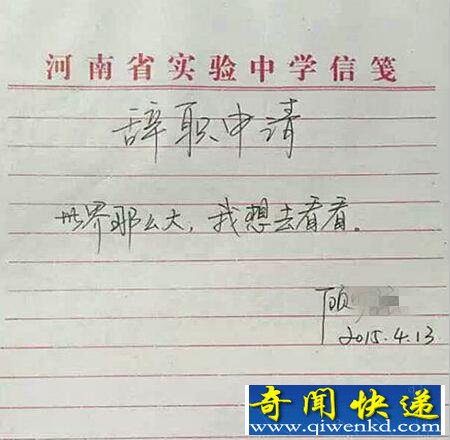 河南省实验中学信笺
辞职申请
世界那么大，我想去看看。
顾
2015.4.13
奇闻快递
www.qiwenkd.com